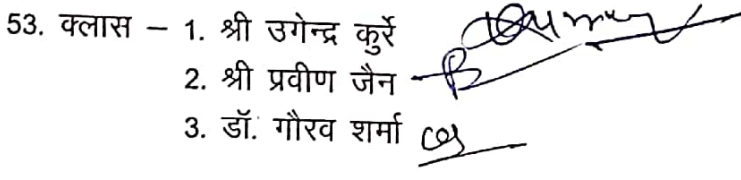 53. क्लास – 1. श्री उगेन्द्र कुर्रे
2. श्री प्रवीण जैन
3. डॉ. गौरव शर्मा